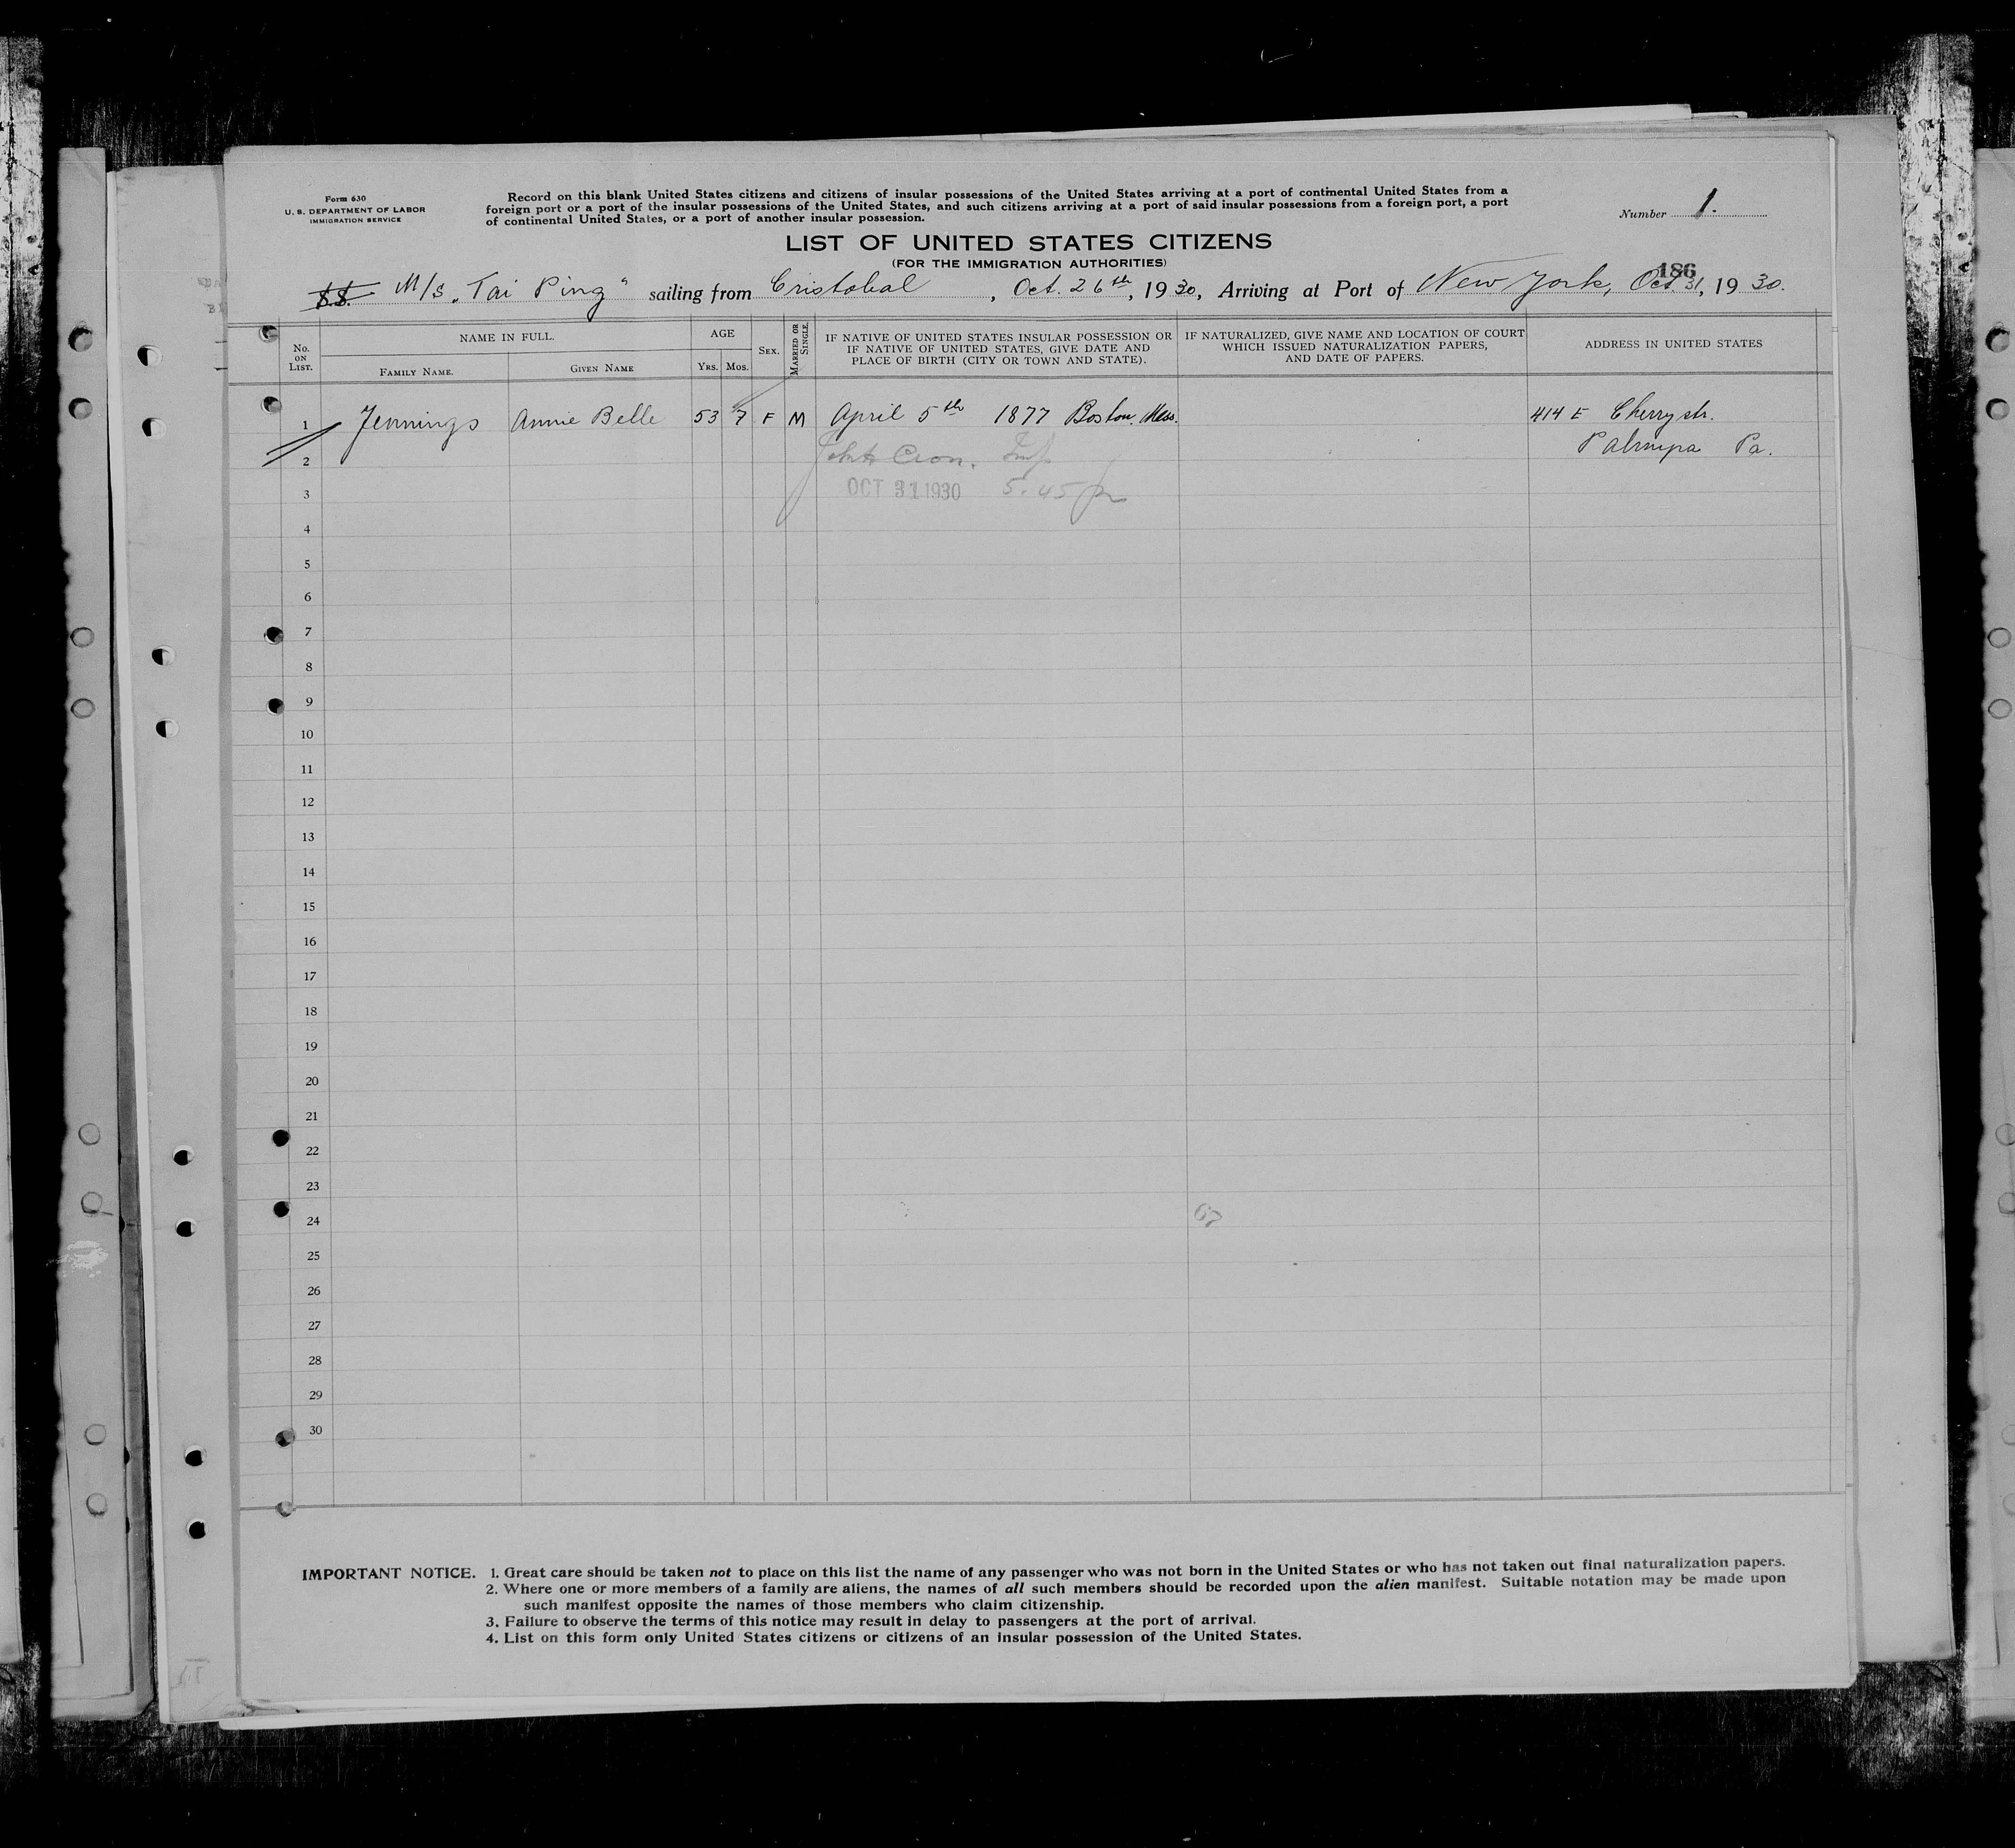 Form 630
U. S. DEPARTMENT OF LABOR
IMMIGRATION SERVICE
Record on this blank United States citizens and citizens of insular possessions of the United States arriving at a port of continental United States from a
foreign port or a port of the insular possessions of the United States, and such citizens arriving at a port of said insular possessions from a foreign port, a port
of continental United States, or a port of another insular possession.
Number 1.
LIST OF UNITED STATES CITIZENS
(FOR THE IMMIGRATION AUTHORITIES)
186
S.S. M/s „Tai Ping" sailing from Cristobal, Oct. 26th, 1930, Arriving at Port of New York, Oct. 31, 1930.
No. ON LIST.
NAME IN FULL.
FAMILY NAME.
GIVEN NAME
AGE
YRS.
MOS.
SEX.
MARRIED OR SINGLE.
IF NATIVE OF UNITED STATES INSULAR POSSESSION OR
IF NATIVE OF UNITED STATES, GIVE DATE AND
PLACE OF BIRTH (CITY OR TOWN AND STATE).
IF NATURALIZED, GIVE NAME AND LOCATION OF COURT
WHICH ISSUED NATURALIZATION PAPERS,
AND DATE OF PAPERS.
ADDRESS IN UNITED STATES
1 Jennings Annie Belle 53 7 F M April 5th 1877 Boston, Mass. 414 E Cherry str.
2 Palmyra Pa.
3 OCT 31 1930 5.45 p
4
5
6
7
8
9
10
11
12
13
14
15
16
17
18
19
20
21
22
23
24 67
25
26
27
28
29
30
IMPORTANT NOTICE. 1. Great care should be taken not to place on this list the name of any passenger who was not born in the United States or who has not taken out final naturalization papers.
2. Where one or more members of a family are aliens, the names of all such members should be recorded upon the alien manifest. Suitable notation may be made upon
such manifest opposite the names of those members who claim citizenship.
3. Failure to observe the terms of this notice may result in delay to passengers at the port of arrival.
4. List on this form only United States citizens or citizens of an insular possession of the United States.